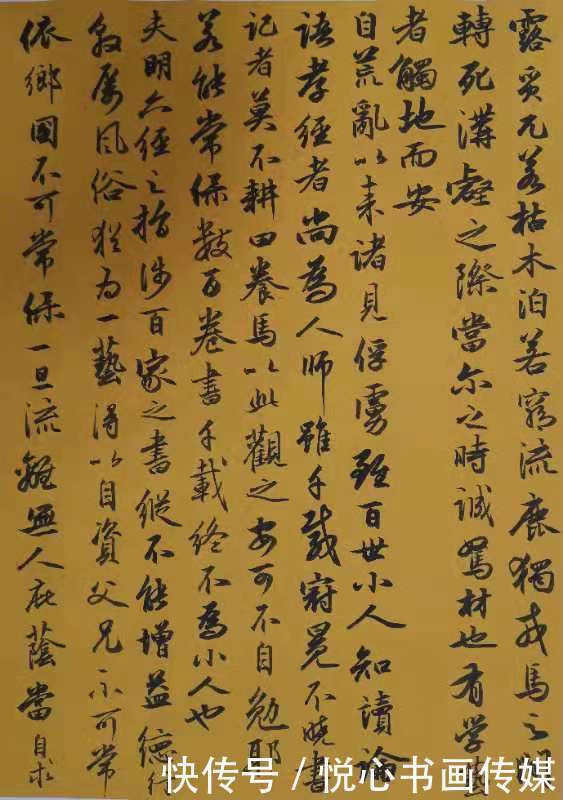 露質兀若枯木泊若窮流鹿獨戎馬之間
轉死溝壑之際當尒之時誠駑材也有學藝
者觸地而安
自荒亂以来諸見俘虜雖百世小人知讀論
語孝經者尚為人師雖千載冠冕不曉書
記者莫不耕田養馬以此觀之安可不自勉耶
若能常保數百卷書千載終不為小人也
夫明六經之指涉百家之書縱不能增益德行
敦厲風俗猶為一藝得以自資父兄不可常
依鄉國不可常保一旦流離無人庇蔭當自求
快传号/悦心书画传媒